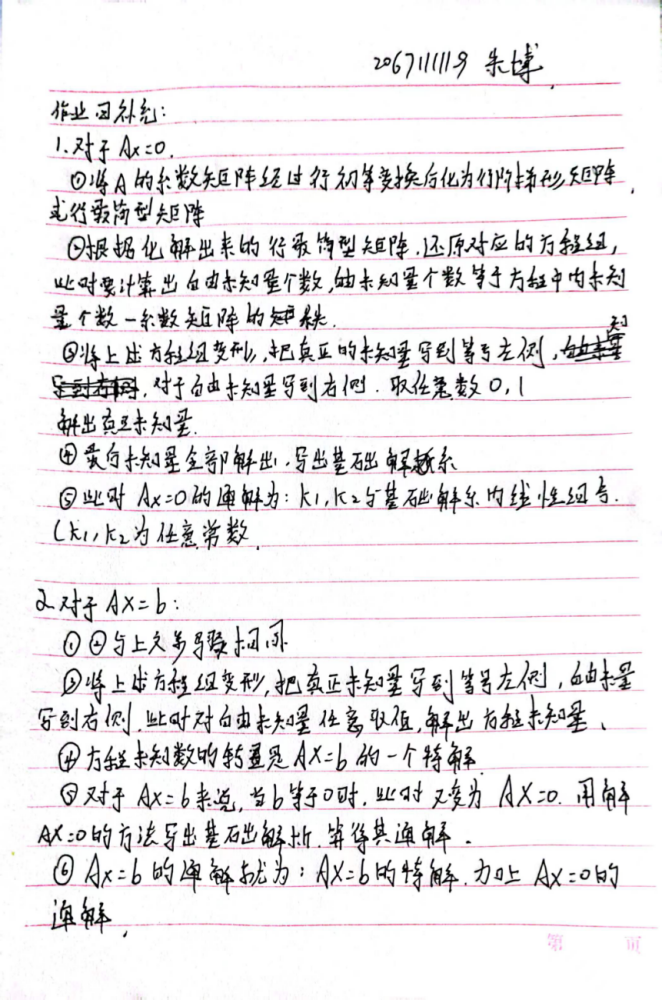 2067111119 朱博
作业四补充:
1.对于 Ax=0.
①将A的系数矩阵经过行初等变换后化为行阶梯形矩阵
或行最简型矩阵
②根据化解出来的行最简型矩阵.还原对应的方程组,
此时要计算出自由未知量个数,自由未知量个数等于方程中内未知
量个数-系数矩阵的秩.
③将上述方程组变形,把真正的未知量写到等号左侧,
对于自由未知量写到右侧.取任意数0,1
解出真正未知量.
④最后未知量全部解出.写出基础解系
⑤此时 Ax=0的通解为:k1,k2与基础解系内线性组合.
(k1,k2为任意常数.
2.对于 AX=b:
①②与上文步骤相同.
③将上述方程组变形,把真正未知量写到等号左侧,自由未量
写到右侧.此时对自由未知量任意取值,解出方程未知量.
④方程未知数的转置是AX=b的一个特解
⑤对于 AX=b来说,当b等于0时.此时又变为 AX=0.用解
AX=0的方法写出基础解析.算得其通解.
⑥AX=b的通解就为:AX=b的特解.加上 AX=0的
通解.
第 页